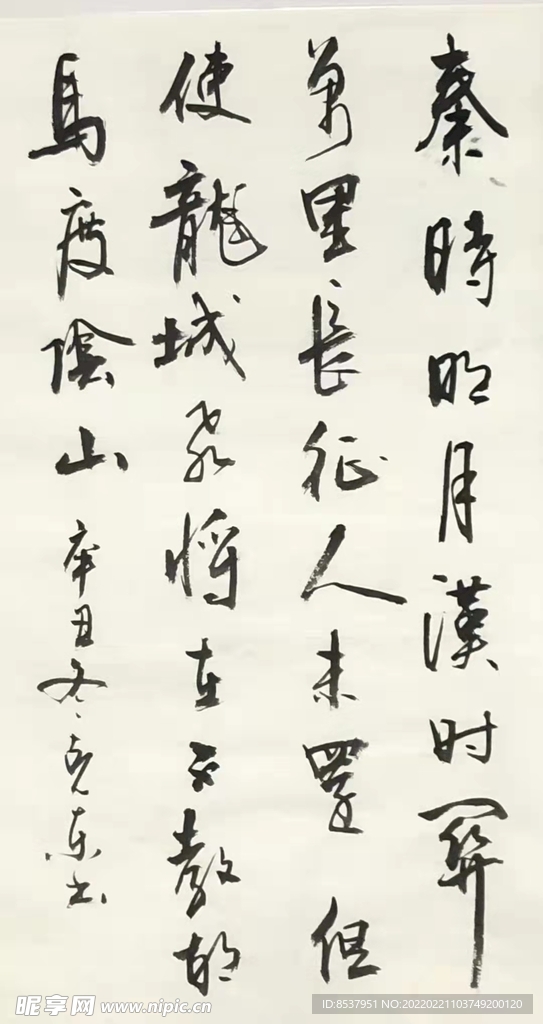 秦時明月漢时關
萬里長征人未還但
使龍城飛将在不教胡
馬度陰山 辛丑冬 东书
昵享网 www.nipic.cn
ID:8537951 NO:20220221103749200120